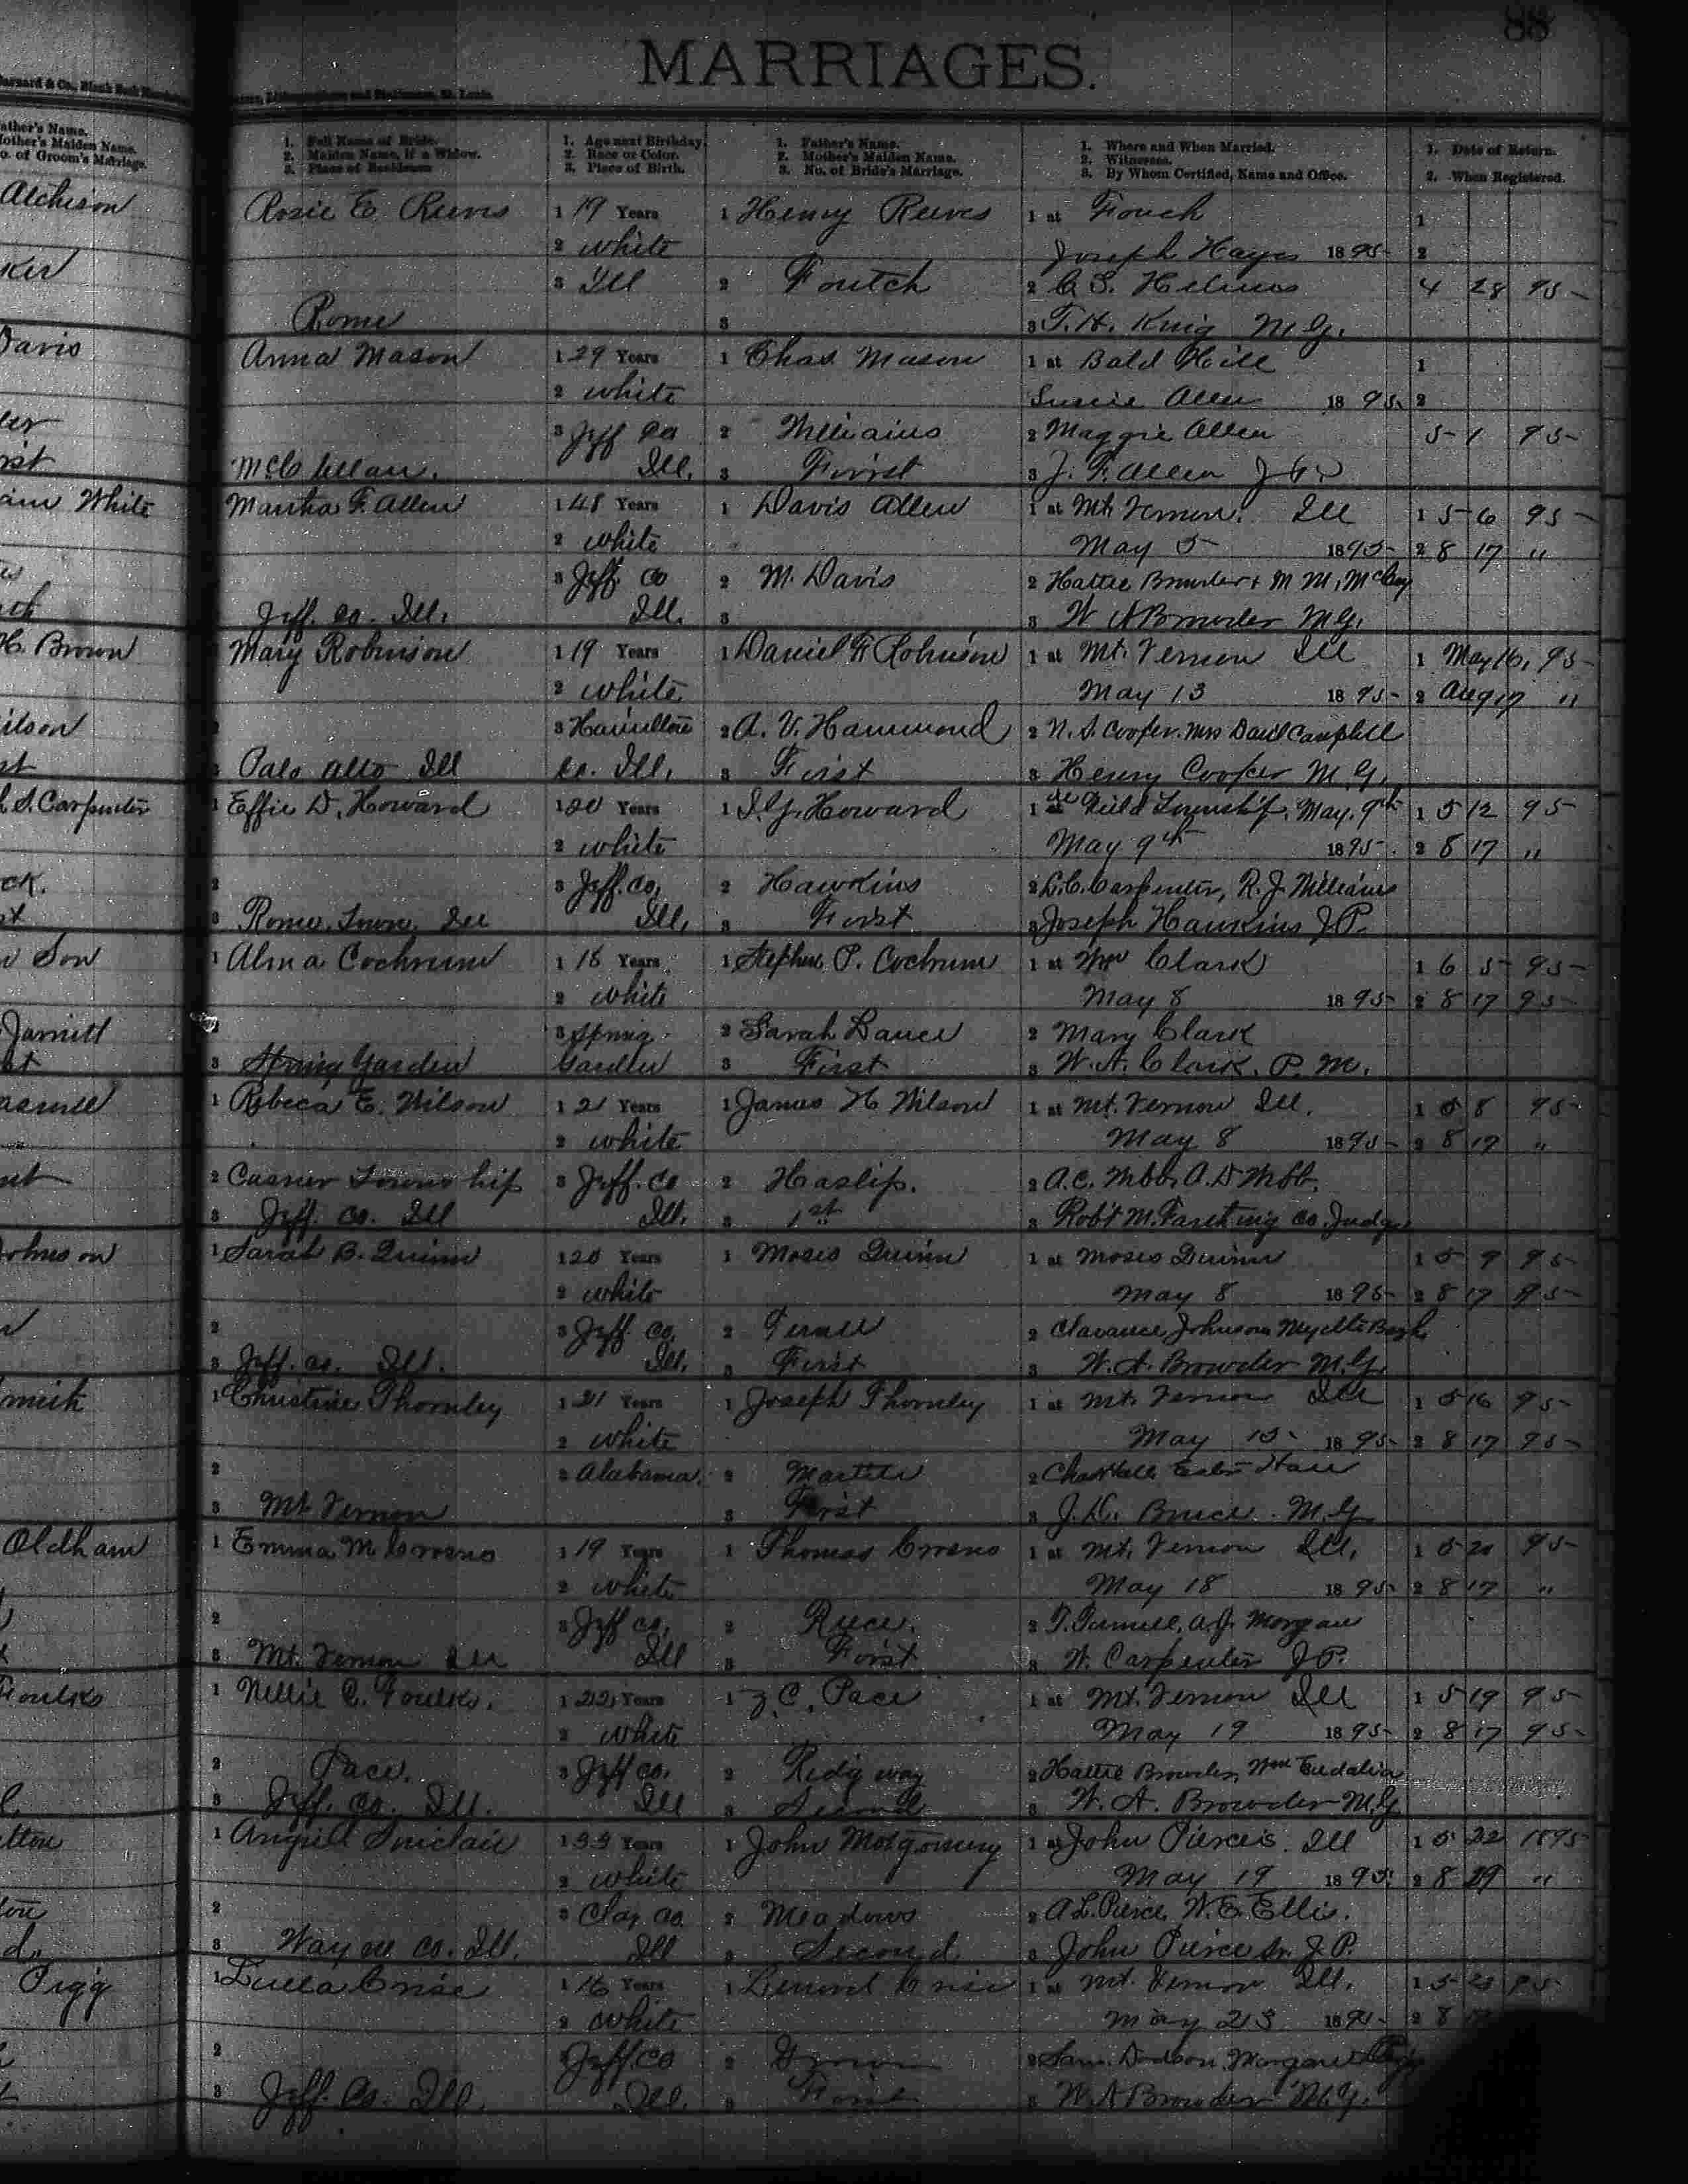 88
MARRIAGES.
1. Full Name of Bride. 2. Maiden Name, if a Widow. 3. Place of Residence
1. Age next Birthday. 2. Race or Color. 3. Place of Birth.
1. Father's Name. 2. Mother's Maiden Name. 3. No. of Bride's Marriage.
1. Where and When Married. 2. Witnesses. 3. By Whom Certified, Name and Office.
1. Date of Return. 2. When Registered.
Atchison Rosie E. Reeves 1 19 Years 1 Henry Reeves 1 at Fouch 1
2 white Joseph Hayes 1895 2
3 Ill 2 Foutch 2 4 28 95
Rome 3 3 T. H. King M.G.
Davis Anna Mason 1 29 Years 1 Chas Mason 1 at Bald Hill 1
2 white Susie Allen 1895 2
3 Jeff Co 2 Williams 2 Maggie Allen 5 1 95
McClellan. Ill. 3 First 3 J. F. Allen J.P.
White Martha F. Allen 1 48 Years 1 Davis Allen 1 at Mt. Vernon. Ill 1 5 6 95
2 white May 5 1895 2 8 17 "
3 Jeff. Co 2 M. Davis 2 Hattie Browder + M. M.
Jeff. Co. Ill. Ill. 3 3 W A Browder M.G.
H. Brown Mary Robinson 1 19 Years 1 Daniel F. Robinson 1 at Mt. Vernon Ill 1 May 16, 95
2 white May 13 1895 2 Aug 17 "
2 3 Hamilton 2 A. V. Hammond 2 N. S. Cooper. Mrs David Campbell
3 Palo Alto Ill Co. Ill. 3 First 3 Henry Cooper M.G.
S. Carpenter 1 Effie D. Howard 1 20 Years 1 Howard 1 at Field Township, May. 9th 1 5 12 95
2 white May 9th 1895 2 8 17 "
2 3 Jeff. Co. 2 Hawkins 2 L. C. Carpenter, R. J. Williams
3 Rome Town. Ill Ill. 3 First 3 Joseph Hawkins J.P.
Son 1 Alma Cochrum 1 18 Years 1 Stephen P. Cochrum 1 at Wm Clark 1 6 5 95
2 white May 8 1895 2 8 17 95
2 3 Spring 2 Sarah 2 Mary Clark
3 Spring Garden Garden 3 First 3 W. A. Clark, P. M.
1 Rebeca E. Wilson 1 21 Years 1 James H Wilson 1 at Mt. Vernon Ill. 1 5 8 95
2 white May 8 1895 2 8 17 "
2 Casner Township 3 Jeff. Co 2 Haslip. 2 A. C. Webb, A. D. Webb.
3 Jeff. Co. Ill Ill. 3 1st 3 Robt M. Farthing Co Judge
Johnson 1 Sarah B. Quinn 1 20 Years 1 Moses Quinn 1 at Moses Quinn 1 5 9 95
2 white May 8 1895 2 8 17 95
2 3 Jeff. Co. 2 2 Clarance Johnson,
3 Jeff. Co. Ill. Ill. 3 First 3 W. A. Browder M.G.
1 Christine Thornley 1 21 Years 1 Joseph Thornley 1 at Mt. Vernon Ill 1 5 16 95
2 white May 15 1895 2 8 17 95
2 3 Alabama. 2 2 Chas Hall
3 Mt Vernon 3 First 3 Bruce M.G.
Oldham 1 Emma M. 1 19 Years 1 Thomas 1 at Mt. Vernon Ill. 1 5 20 95
2 white May 18 1895 2 8 17 "
2 3 Jeff Co. 2 Reece. 2 A. J. Morgan
3 Mt. Vernon Ill Ill 3 First 3 W. Carpenter J.P.
Foulks 1 Nellie C. Foulks. 1 22 Years 1 Z. C. Pace 1 at Mt. Vernon Ill 1 5 19 95
2 white May 19 1895 2 8 17 95
2 Pace. 3 Jeff Co. 2 Ridgway 2 Hattie Browder,
3 Jeff. Co. Ill. Ill 3 Second 3 W. A. Browder M.G.
1 Sinclair 1 33 Years 1 John Motgomery 1 at John Pierceis. Ill 1 5 22 1895
2 white May 19 1895 2 8 29 "
2 3 Clay Co 2 Meadows 2 A L. Pierce, W. E. Ellis.
3 Wayne Co. Ill. Ill 3 Second 3 John Pierce Sr. J.P.
Pigg 1 Luella Crise 1 16 Years 1 1 at Mt. Vernon Ill. 1 5 23 95
2 white May 23 1895 2 8
2 3 Jeff. Co 2 2 Sam. Dodson, Margaret
3 Jeff. Co. Ill. Ill. 3 First 3 W. A Browder M.G.